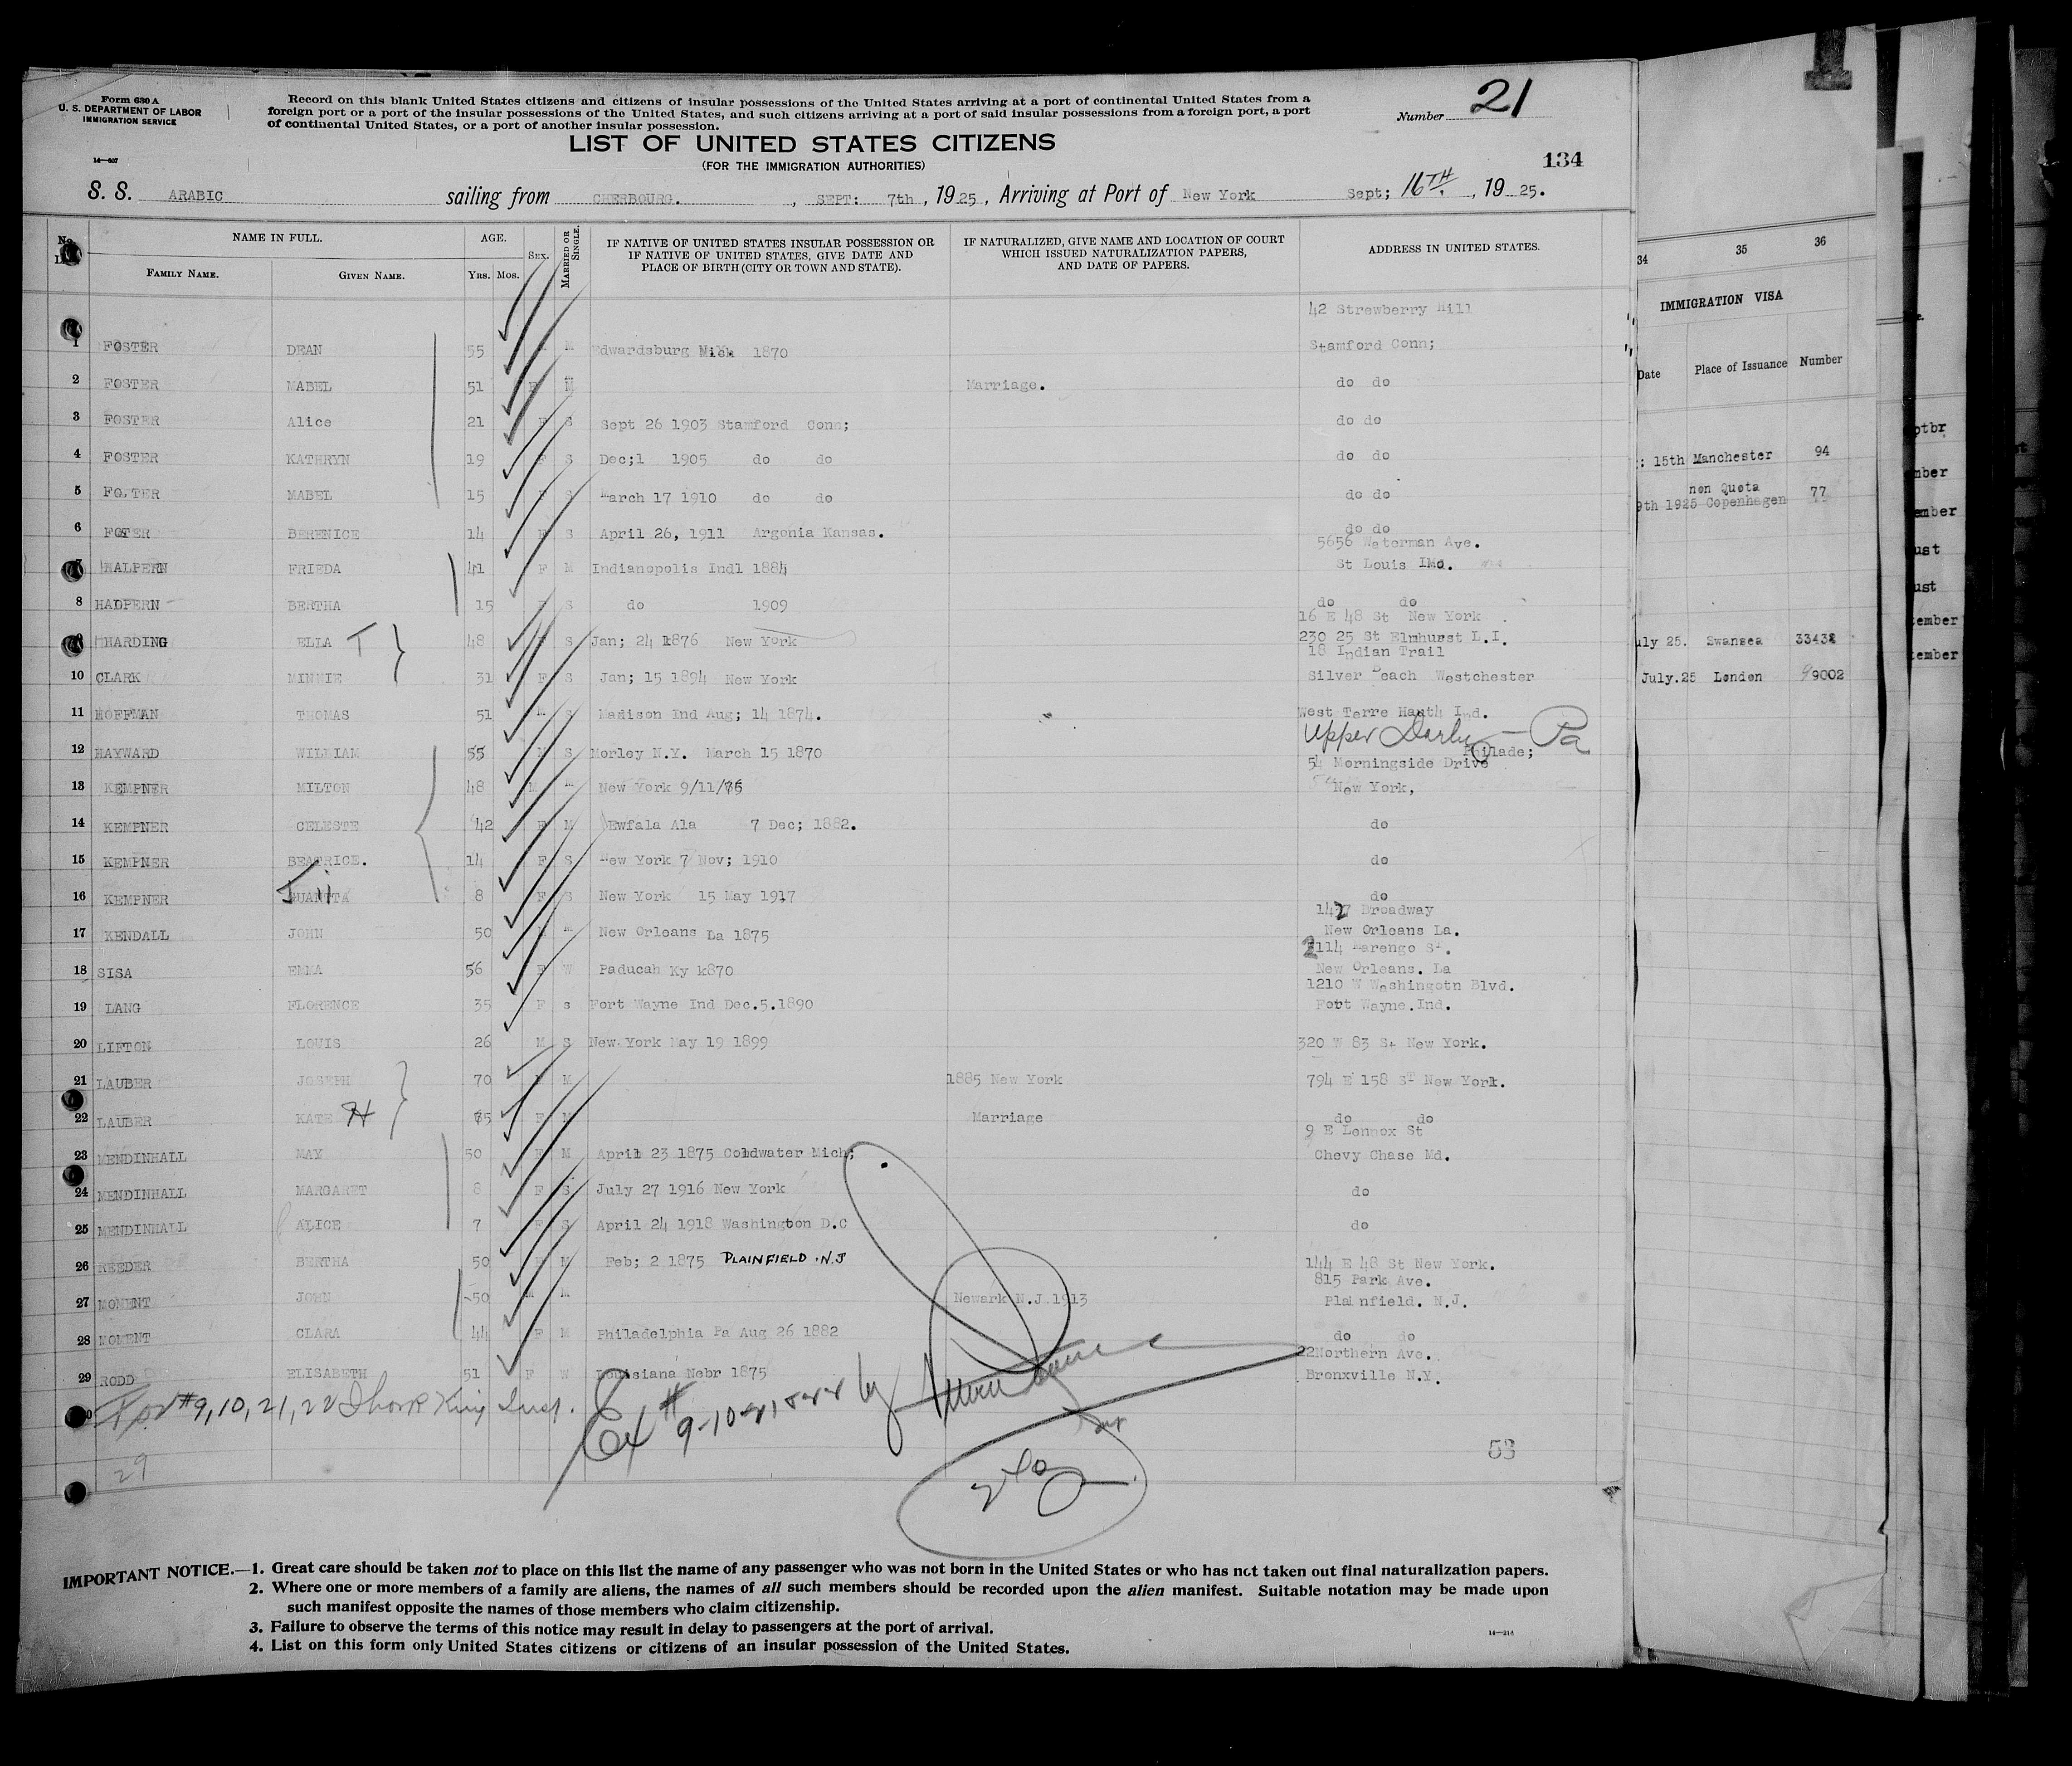 Form 630 A
U. S. DEPARTMENT OF LABOR
IMMIGRATION SERVICE
14—407
Record on this blank United States citizens and citizens of insular possessions of the United States arriving at a port of continental United States from a
foreign port or a port of the insular possessions of the United States, and such citizens arriving at a port of said insular possessions from a foreign port, a port
of continental United States, or a port of another insular possession.
Number 21
LIST OF UNITED STATES CITIZENS
(FOR THE IMMIGRATION AUTHORITIES)
134
S. S. ARABIC sailing from CHERBOURG. , SEPT: 7th , 1925 , Arriving at Port of New York Sept; 16TH , 19 25.
NAME IN FULL. AGE. SEX. MARRIED OR SINGLE. IF NATIVE OF UNITED STATES INSULAR POSSESSION OR IF NATIVE OF UNITED STATES, GIVE DATE AND PLACE OF BIRTH (CITY OR TOWN AND STATE). IF NATURALIZED, GIVE NAME AND LOCATION OF COURT WHICH ISSUED NATURALIZATION PAPERS, AND DATE OF PAPERS. ADDRESS IN UNITED STATES.
FAMILY NAME. GIVEN NAME. YRS. MOS.
42 Strewberry Hill
1 FOSTER DEAN 55 M Edwardsburg Mich 1870 Stamford Conn;
2 FOSTER MABEL 51 F M Marriage. do do
3 FOSTER Alice 21 F S Sept 26 1903 Stamford Conn; do do
4 FOSTER KATHRYN 19 F S Dec;1 1905 do do do do
5 FO.TER MABEL 15 F S March 17 1910 do do do do
6 FOTER BERENICE 14 F S April 26, 1911 Argonia Kansas. do do
5656 Waterman Ave.
7 HALPERN FRIEDA 41 F M Indianopolis Indl 1884 St Louis IMo.
8 HADPERN BERTHA 15 F S do 1909 do do
16 E 48 St New York
9 HARDING ELLA T 48 F S Jan; 24 1876 New York 230 25 St Elmhurst L.I.
18 Indian Trail
10 CLARK MINNIE 31 F S Jan; 15 1894 New York Silver Beach Westchester
11 HOFFMAN THOMAS 51 M S Madison Ind Aug; 14 1874. West Terre Hauth Ind.
Upper Darby — Pa
12 HAYWARD WILLIAM 55 M S Morley N.Y. March 15 1870 Philade;
54 Morningside Drive
13 KEMPNER MILTON 48 M M New York 9/11/76 New York,
14 KEMPNER CELESTE 42 F M Ewfala Ala 7 Dec; 1882. do
15 KEMPNER BEATRICE. 14 F S New York 7 Nov; 1910 do
16 KEMPNER JUANITA 8 F S New York 15 May 1917 do
1427 Broadway
17 KENDALL JOHN 50 M M New Orleans La 1875 New Orleans La.
2114 Marengo St.
18 SISA EMMA 56 F W Paducah Ky k870 New Orleans. La
1210 W Washingotn Blvd.
19 LANG FLORENCE 35 F s Fort Wayne Ind Dec.5.1890 Fort Wayne.Ind.
20 LIFTON LOUIS 26 M S New York May 19 1899 320 W 83 St New York.
21 LAUBER JOSEPH 70 M M 1885 New York 794 E 158 ST New York.
22 LAUBER KATE H 65 F M Marriage do do
9 E Lennox St
23 MENDINHALL MAY 50 F M April 23 1875 Coldwater Mich; Chevy Chase Md.
24 MENDINHALL MARGARET 8 F S July 27 1916 New York do
25 MENDINHALL ALICE 7 F S April 24 1918 Washington D.C do
26 REEDER BERTHA 50 F M Feb; 2 1875 PLAINFIELD N.J 144 E 48 St New York.
815 Park Ave.
27 MOMENT JOHN 50 M M Newark N.J 1913 Plainfield. N.J.
28 MOMENT CLARA 44 F M Philadelphia Pa Aug 26 1882 do do
22Northern Ave.
29 RODD ELISABETH 51 F W Louisiana Nebr 1875 Bronxville N.Y.
For #9,10,21,22
Ex # 9-10-21, 22 by
29
53
IMPORTANT NOTICE.—1. Great care should be taken not to place on this list the name of any passenger who was not born in the United States or who has not taken out final naturalization papers.
2. Where one or more members of a family are aliens, the names of all such members should be recorded upon the alien manifest. Suitable notation may be made upon
such manifest opposite the names of those members who claim citizenship.
3. Failure to observe the terms of this notice may result in delay to passengers at the port of arrival.
4. List on this form only United States citizens or citizens of an insular possession of the United States.
14—214
34 35 36
IMMIGRATION VISA
Date Place of Issuance Number
: 15th Manchester 94
non Quota
9th 1925 Copenhagen 77
uly 25. Swansea 33438
July.25 London 99002
ptbr
mber
ember
ust
ust
tember
tember